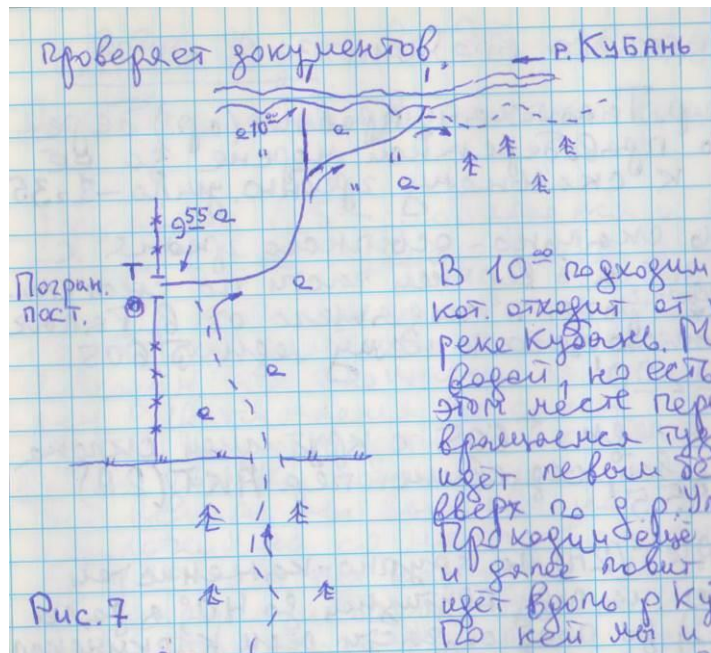 проверяет документов.
← р. Кубань
10⁰⁰
9⁵⁵
Т
Погран.
пост.
В 10⁰⁰ подходим
кот. отходит от
реке Кубань. М
водой, но есть
этом месте пер
вращаемся туд
идёт левым бе
вверх по д.р. Ул
Проходим ещё
и далее
идёт вдоль р Ку
По ней мы и
Рис. 7